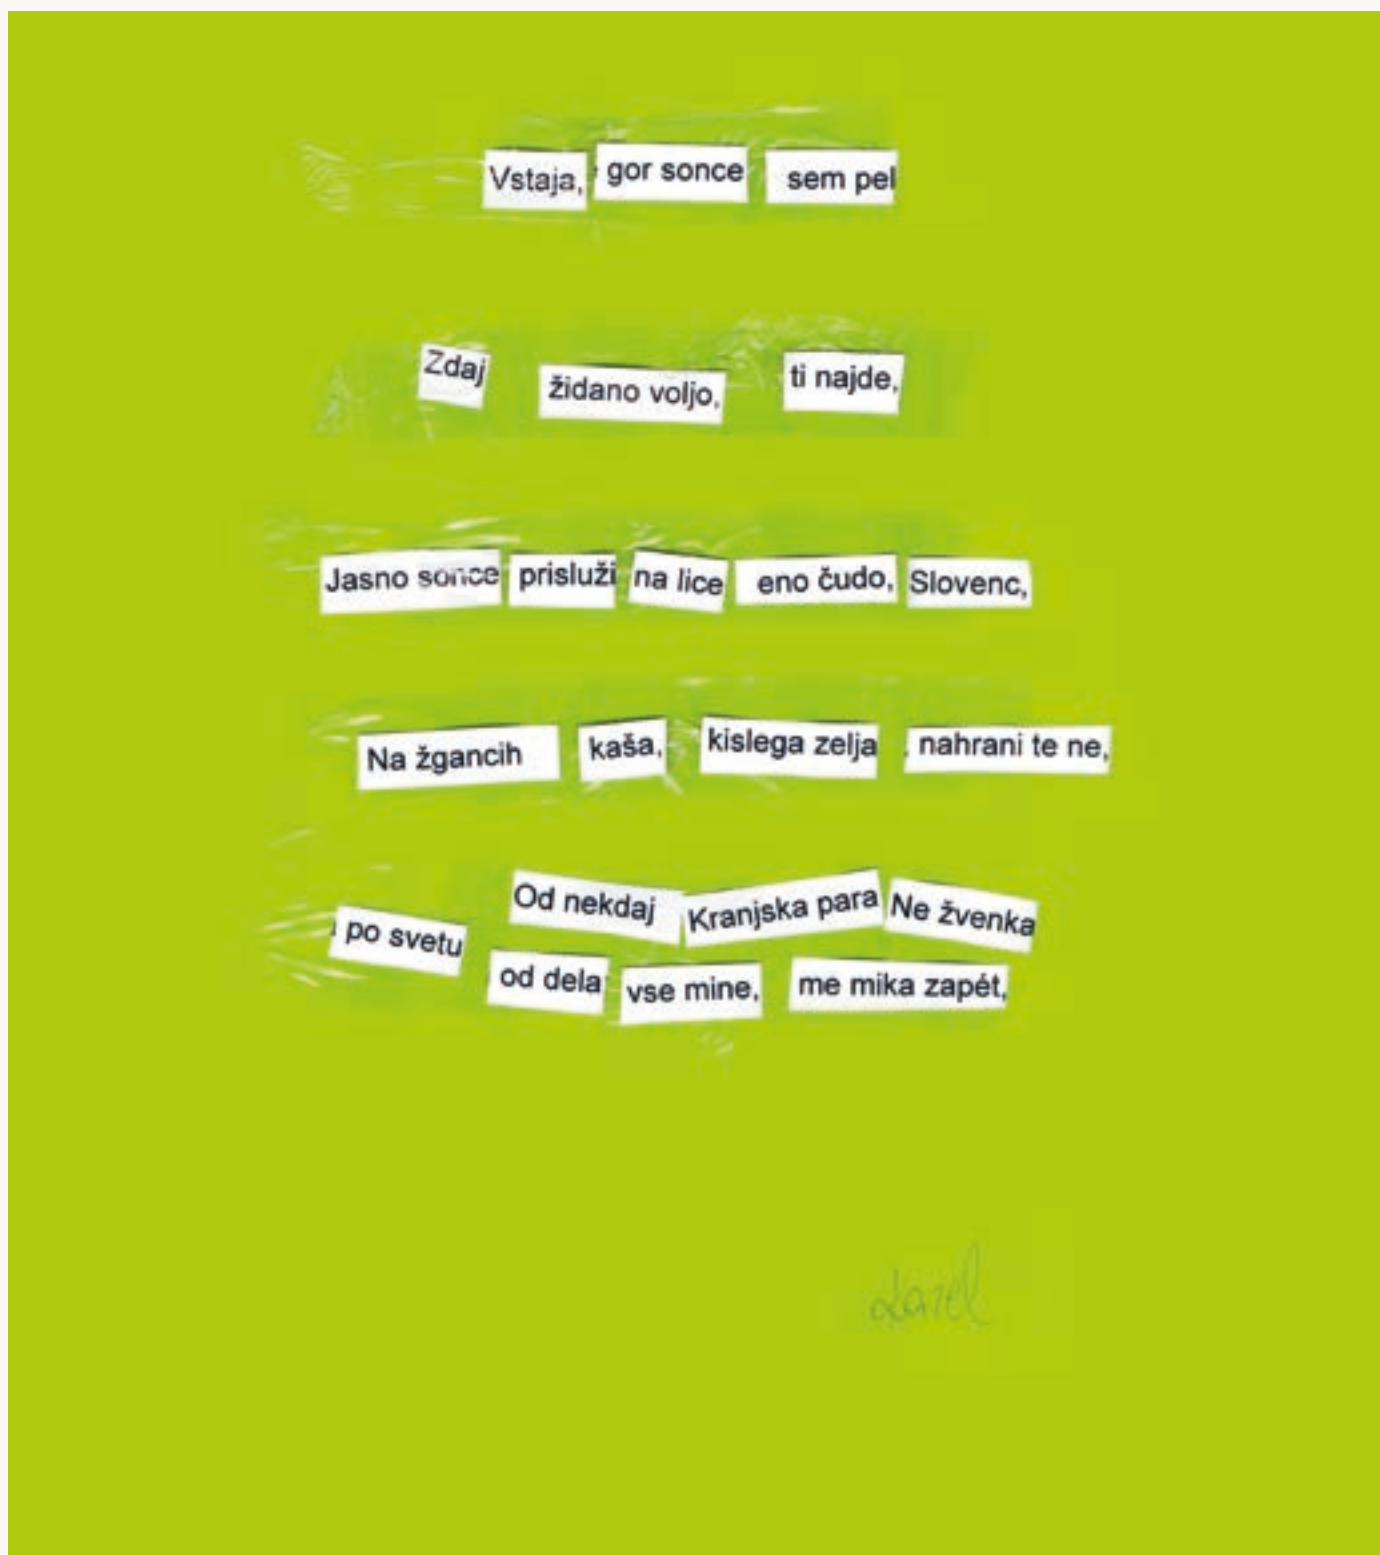 Vstaja, gor sonce sem pel
Zdaj židano voljo, ti najde,
Jasno sonce prisluži na lice eno čudo, Slovenc,
Na žgancih kaša, kislega zelja . nahrani te ne,
Od nekdaj Kranjska para Ne žvenka
po svetu od dela vse mine, me mika zapét,